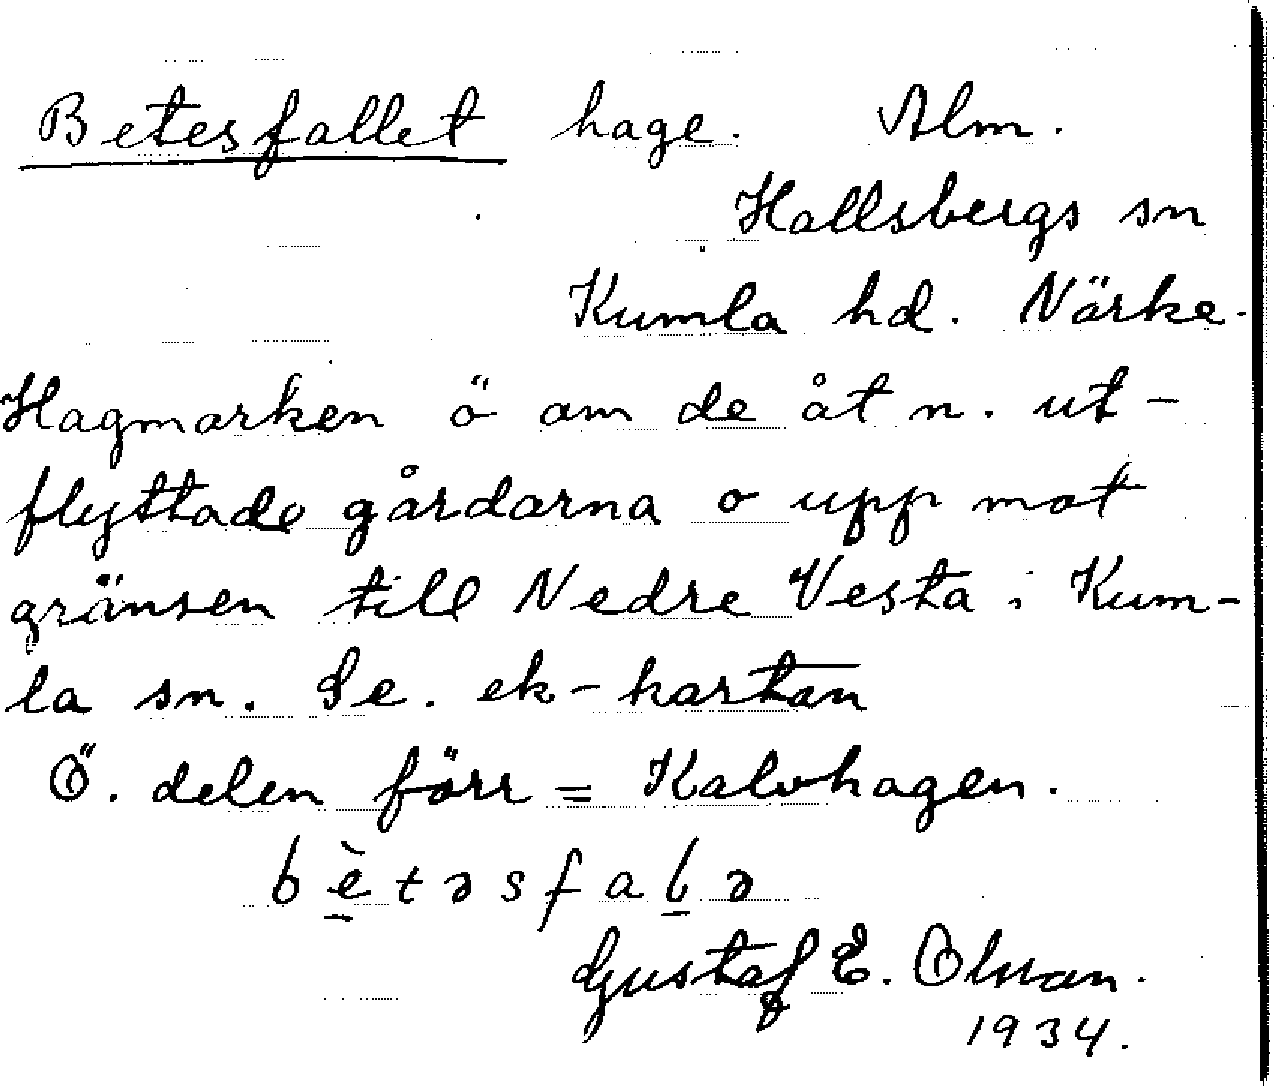 Betesfallet hage. Alm.
Hallsbergs sn
Kumla hd. Närke.
Hagmarken ö om de åt n. ut-
flyttade gårdarna o upp mot
gränsen till Nedre Vesta i Kum-
la sn. Se. ek-kartan
Ö. delen förr = Kalvhagen.
bè̱təsfaḻə
Gustaf E. Olsson.
1934.